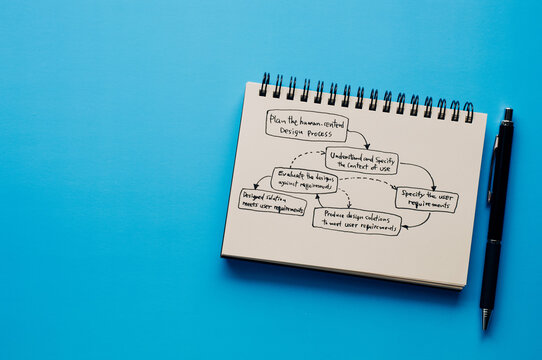 Plan the human-centerd
Design process
Understand and Specify
the context of use
Evaluate the designs
against requirements
Specify the user
requirements
Designed solution
meets user requirements
Produce design solutions
to meet user requirements